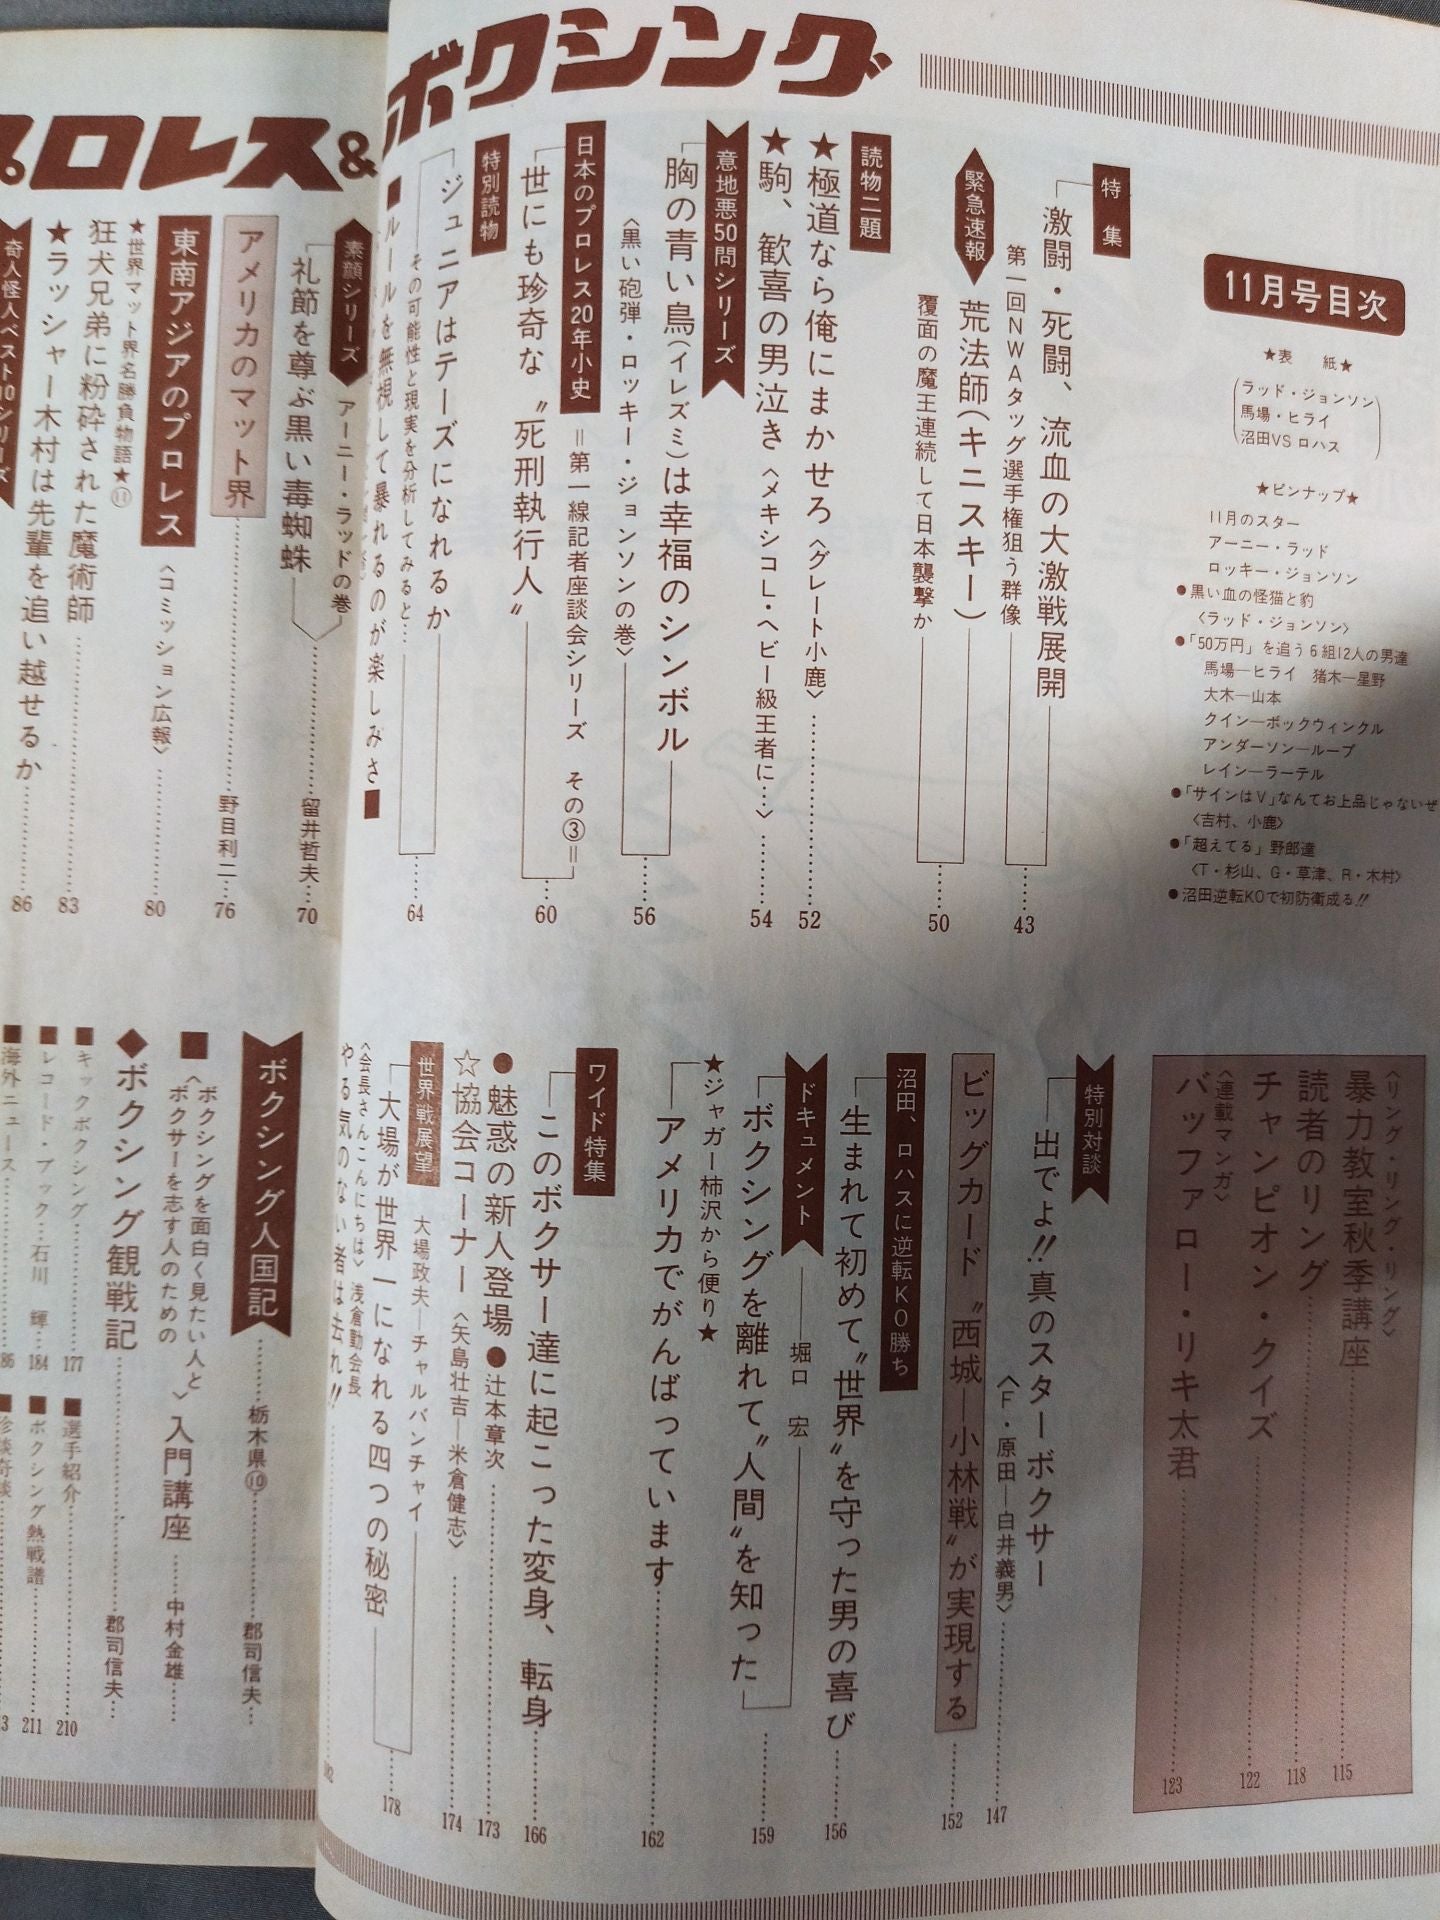 プロレス&
ボクシング
11月号目次
★表　紙★
ラッド・ジョンソン
馬場・ヒライ
沼田VSロハス
★ピンナップ★
11月のスター
アーニー・ラッド
ロッキー・ジョンソン
●黒い血の怪猫と豹
〈ラッド・ジョンソン〉
●「50万円」を追う6組12人の男達
馬場―ヒライ　猪木―星野
大木―山本
クイン―ボックウィンクル
アンダーソン―ループ
レイン―ラーテル
●「サインはV」なんてお上品じゃないぜ
〈吉村、小鹿〉
●「超えてる」野郎達
〈T・杉山、G・草津、R・木村〉
●沼田逆転KOで初防衛成る!!
特集
激闘・死闘、流血の大激戦展開
第一回NWAタッグ選手権狙う群像……43
緊急速報
荒法師(キニスキー)
覆面の魔王連続して日本襲撃か……50
読物二題
★極道なら俺にまかせろ〈グレート小鹿〉……52
★駒、歓喜の男泣き〈メキシコL・ヘビー級王者に…〉……54
意地悪50問シリーズ
胸の青い鳥(イレズミ)は幸福のシンボル
〈黒い砲弾・ロッキー・ジョンソンの巻〉……56
日本のプロレス20年小史
＝第一線記者座談会シリーズ　その③＝
世にも珍奇な〝死刑執行人〟……60
特別読物
ジュニアはテーズになれるか
その可能性と現実を分析してみると………64
■ルールを無視して暴れるのが楽しみさ■
素顔シリーズ
アーニー・ラッドの巻
礼節を尊ぶ黒い毒蜘蛛……留井哲夫…70
アメリカのマット界……野目利二…76
東南アジアのプロレス〈コミッション広報〉……80
★世界マット界名勝負物語★⑪
狂犬兄弟に粉砕された魔術師……83
★ラッシャー木村は先輩を追い越せるか……86
奇人怪人ベスト10シリーズ
〈リング・リング・リング〉
暴力教室秋季講座……115
読者のリング……118
チャンピオン・クイズ……122
〈連載マンガ〉
バッファロー・リキ太君……123
特別対談
出でよ!!真のスターボクサー
〈F・原田―白井義男〉……147
ビッグカード〝西城―小林戦〟が実現する……152
沼田、ロハスに逆転KO勝ち
生まれて初めて〝世界〟を守った男の喜び……156
ドキュメント
堀口　宏
ボクシングを離れて〝人間〟を知った……159
★ジャガー柿沢から便り★
アメリカでがんばっています……162
ワイド特集
このボクサー達に起こった変身、転身……166
●魅惑の新人登場●辻本章次……173
☆協会コーナー〈矢島壮吉―米倉健志〉……174
世界戦展望
大場政夫―チャルバンチャイ
大場が世界一になれる四つの秘密……178
〈会長さんこんにちは〉浅倉勤会長
やる気のない者は去れ!!……182
ボクシング人国記……栃木県⑩……郡司信夫…
■〈ボクシングを面白く見たい人と
ボクサーを志す人のための〉入門講座……中村金雄……
◆ボクシング観戦記……郡司信夫…
■キックボクシング……177
■レコード・ブック…石川　輝…184
■海外ニュース……186
■選手紹介……210
■ボクシング熱戦譜……211
■珍談奇談